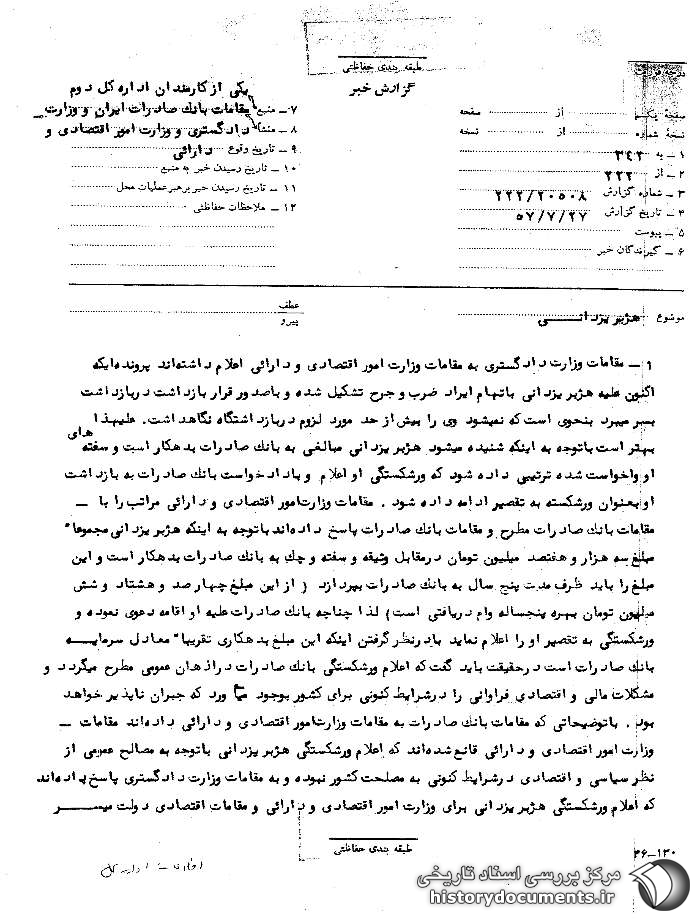 طبقه بندی حفاظتی
گزارش خبر
صفحه یکم از صفحه
نسخه شماره از نسخه
۱ – به ۳۴۲
۲ – از ۲۲۲
۳ – شماره گزارش ۲۲۲/۲۰۵۰۸
۴ – تاریخ گزارش ۵۷/۷/۲۷
۵ – پیوست
۶ – گیرندگان خبر
یکی از کارمندان اداره کل دوم
۷ – منبع مقامات بانک صادرات ایران و وزارت
۸ – منشأ دادگستری و وزارت امور اقتصادی و
۹ – تاریخ وقوع دارائی
۱۰ – تاریخ رسیدن خبر به منبع
۱۱ – تاریخ رسیدن خبر برهبر عملیات محل
۱۲ – ملاحظات حفاظتی
موضوع هژبر یزدانی
عطف
پیرو
۱ – مقامات وزارت دادگستری به مقامات وزارت امور اقتصادی و دارائی اعلام داشته‌اند پرونده‌ایکه
اکنون علیه هژبر یزدانی باتهام ایراد ضرب و جرح تشکیل شده و باصدور قرار بازداشت دربازداشت
بسر میبرد بنحوی است که نمیشود وی را بیش از حد مورد لزوم دربازداشتگاه نگاهداشت. علیهذا
بهتر است باتوجه به اینکه شنیده میشود هژبر یزدانی مبالغی به بانک صادرات بدهکار است و سفته های
او واخواست شده ترتیبی داده شود که ورشکستگی او اعلام و بادادخواست بانک صادرات به بازداشت
او بعنوان ورشکسته به تقصیر ادامه داده شود . مقامات وزارت امور اقتصادی و دارائی مراتب را با –
مقامات بانک صادرات مطرح و مقامات بانک صادرات پاسخ داده‌اند باتوجه به اینکه هژبر یزدانی مجموعا"
مبلغ سه هزار و هفتصد میلیون تومان درمقابل وثیقه و سفته و چک به بانک صادرات بدهکار است و این
مبلغ را باید ظرف مدت پنج سال به بانک صادرات بپردازد ( از این مبلغ چهارصد و هشتاد و شش
میلیون تومان بهره پنجساله وام دریافتی است) لذا چنانچه بانک صادرات علیه او اقامه دعوی نموده و
ورشکستگی به تقصیر او را اعلام نماید بادرنظر گرفتن اینکه این مبلغ بدهکاری تقریبا" معادل سرمایه
بانک صادرات است درحقیقت باید گفت که اعلام ورشکستگی بانک صادرات دراذهان عمومی مطرح میگردد و
مشکلات مالی و اقتصادی فراوانی را درشرایط کنونی برای کشور بوجود میآورد که جبران ناپذیر خواهد
بود . باتوضیحاتی که مقامات بانک صادرات به مقامات وزارت امور اقتصادی و دارائی داده‌اند مقامات –
وزارت امور اقتصادی و دارائی قانع شده‌اند که اعلام ورشکستگی هژبر یزدانی باتوجه به مصالح عمومی از
نظر سیاسی و اقتصادی درشرایط کنونی به مصلحت کشور نبوده و به مقامات وزارت دادگستری پاسخ داده‌اند
که اعلام ورشکستگی هژبر یزدانی برای وزارت امور اقتصادی و دارائی و مقامات اقتصادی دولت میسر
طبقه بندی حفاظتی
۳۶–۱۳۰
مرکز بررسی اسناد تاریخی
historydocuments.ir